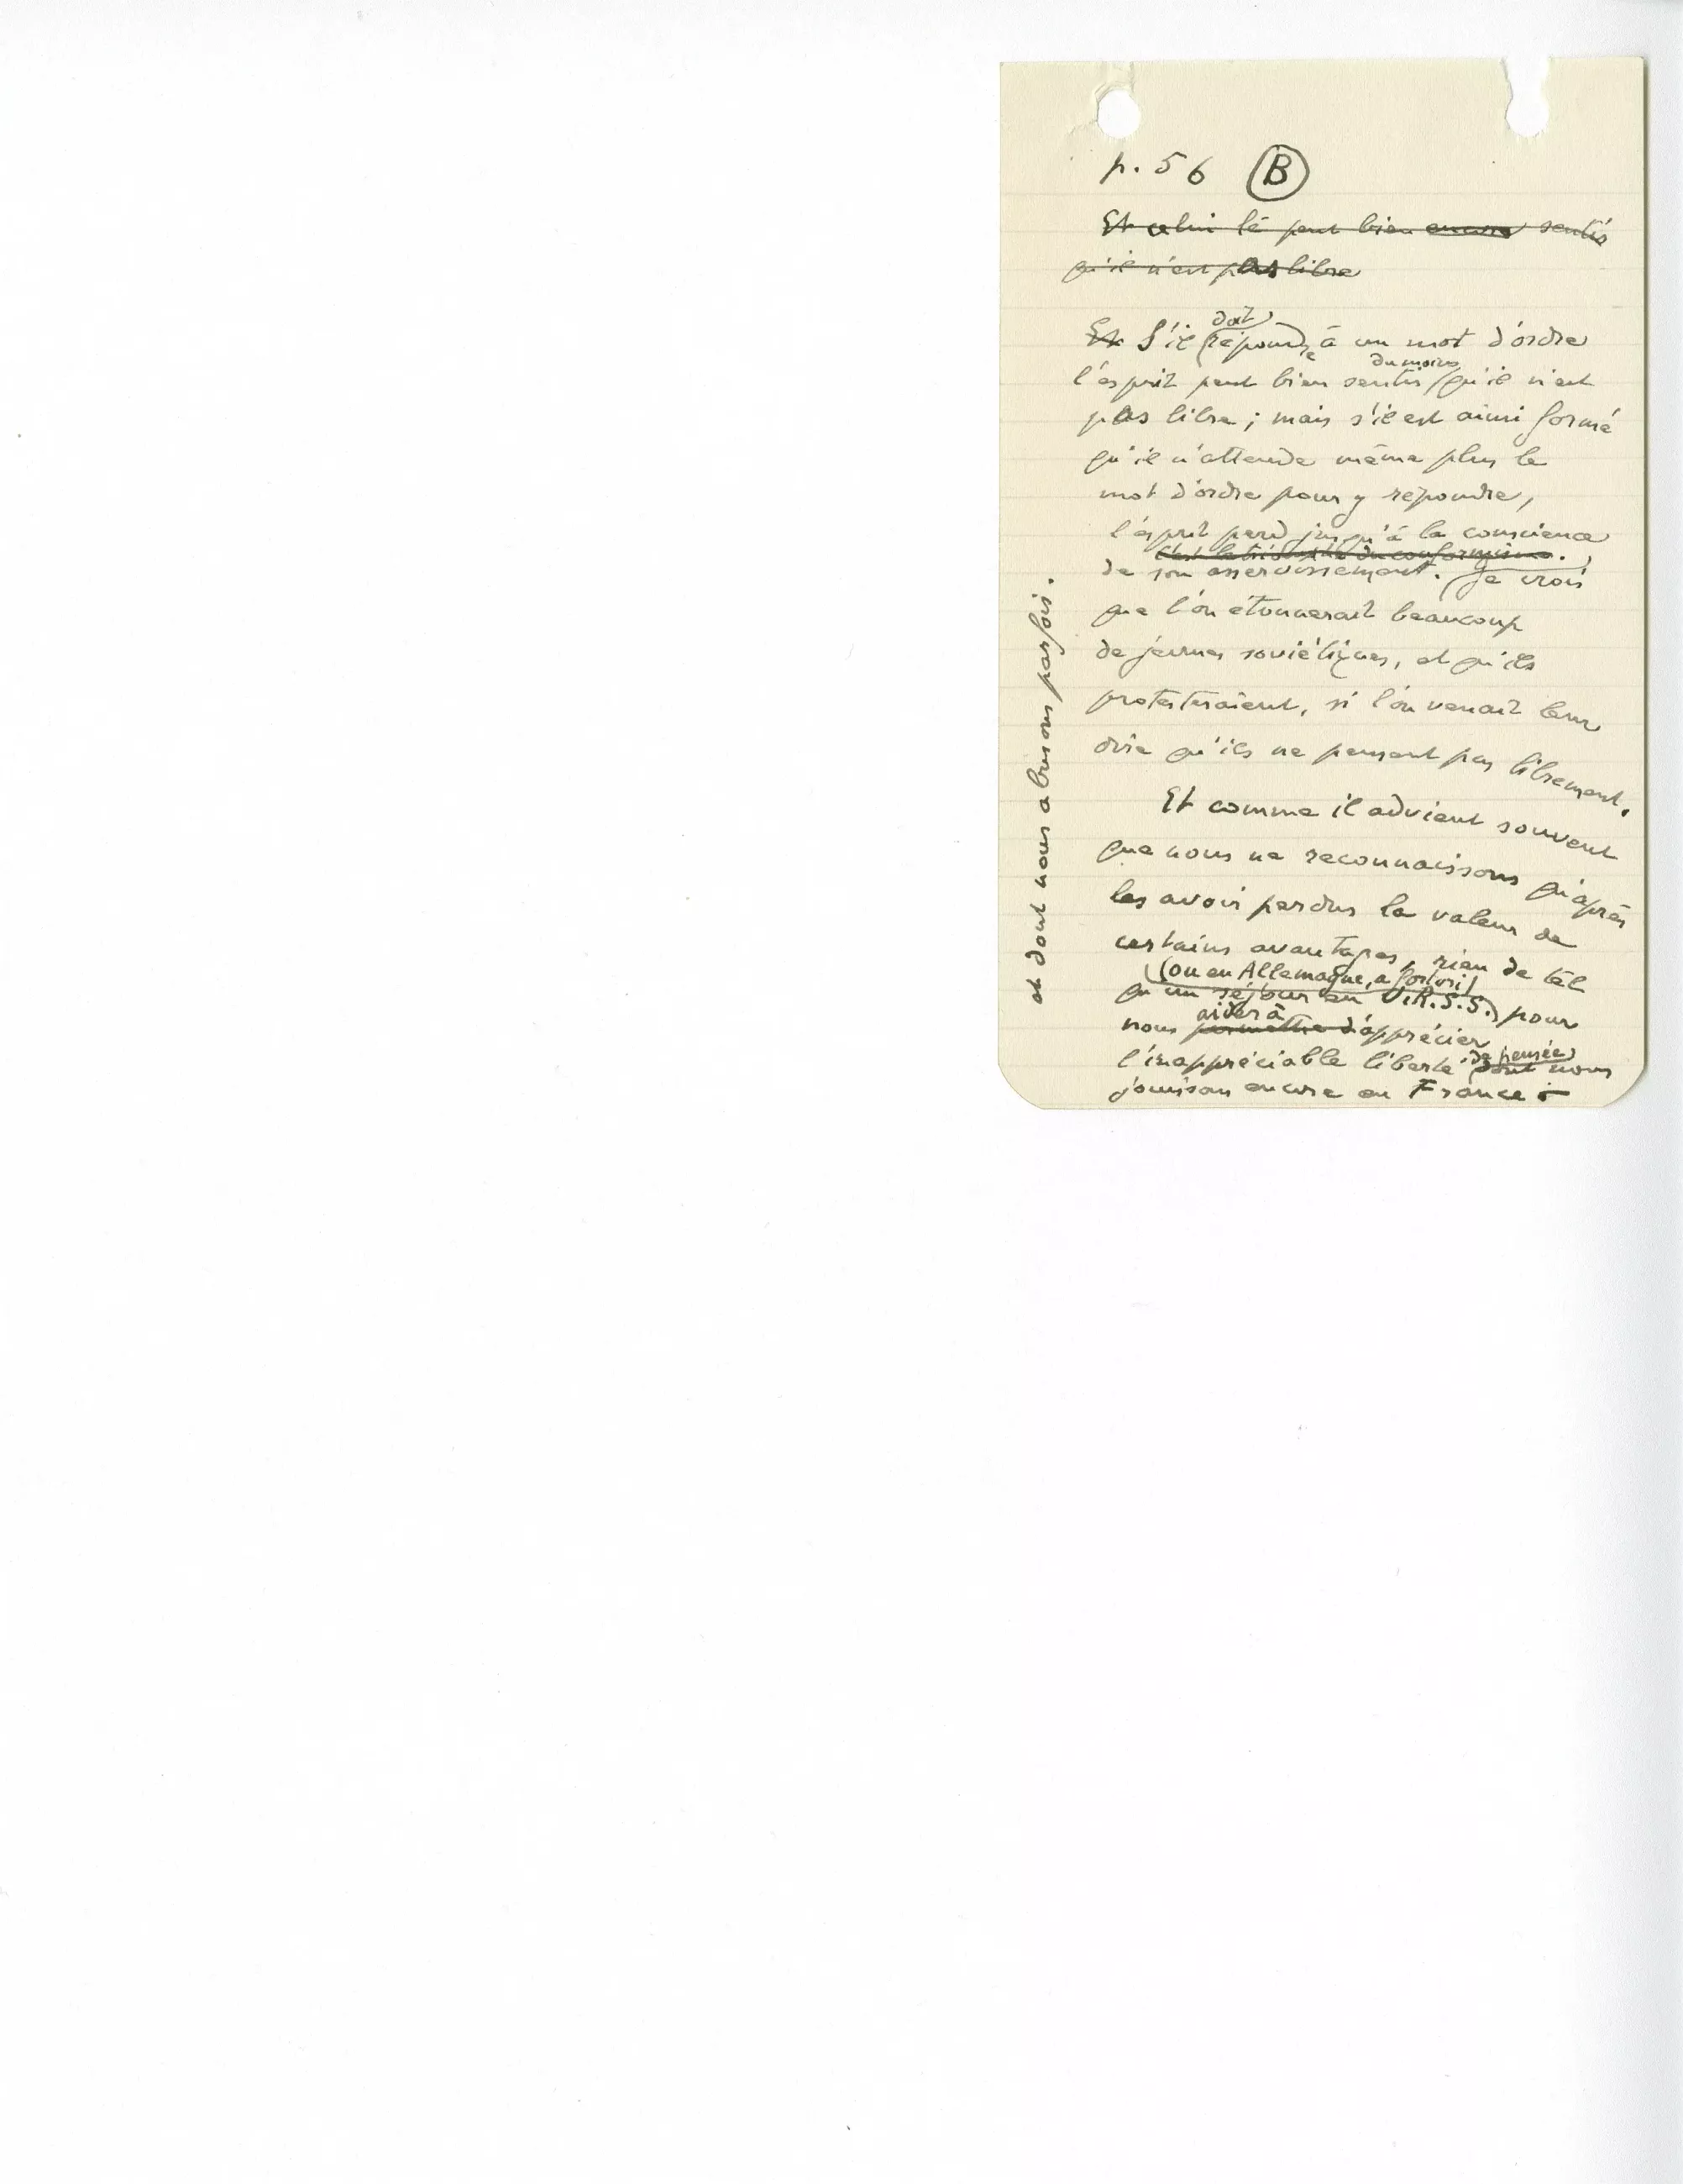 p. 56 B
Et celui là peut bien encore sentir
qu'il n'est pas libre
Et S'il doit répondre à un mot d'ordre
l'esprit peut bien sentir du moins qu'il n'est
pas libre ; mais s'il est ainsi formé
qu'il n'attende même plus le
mot d'ordre pour y répondre,
l'esprit perd jusqu'à la conscience
c'est le triomphe du conformisme.
de son asservissement. Je crois
que l'on étonnerait beaucoup
de jeunes soviétiques, et qu'ils
protesteraient, si l'on venait leur
dire qu'ils ne pensent pas librement.
Et comme il advient souvent
que nous ne reconnaissons qu'après
les avoir perdus la valeur de
certains avantages, rien de tel
(ou en Allemagne, a fortiori)
qu'un séjour en U.R.S.S. pour
aider à
nous permettre d'apprécier
l'inappréciable liberté de pensée dont nous
jouissons encore en France -
et dont nous abusons parfois.